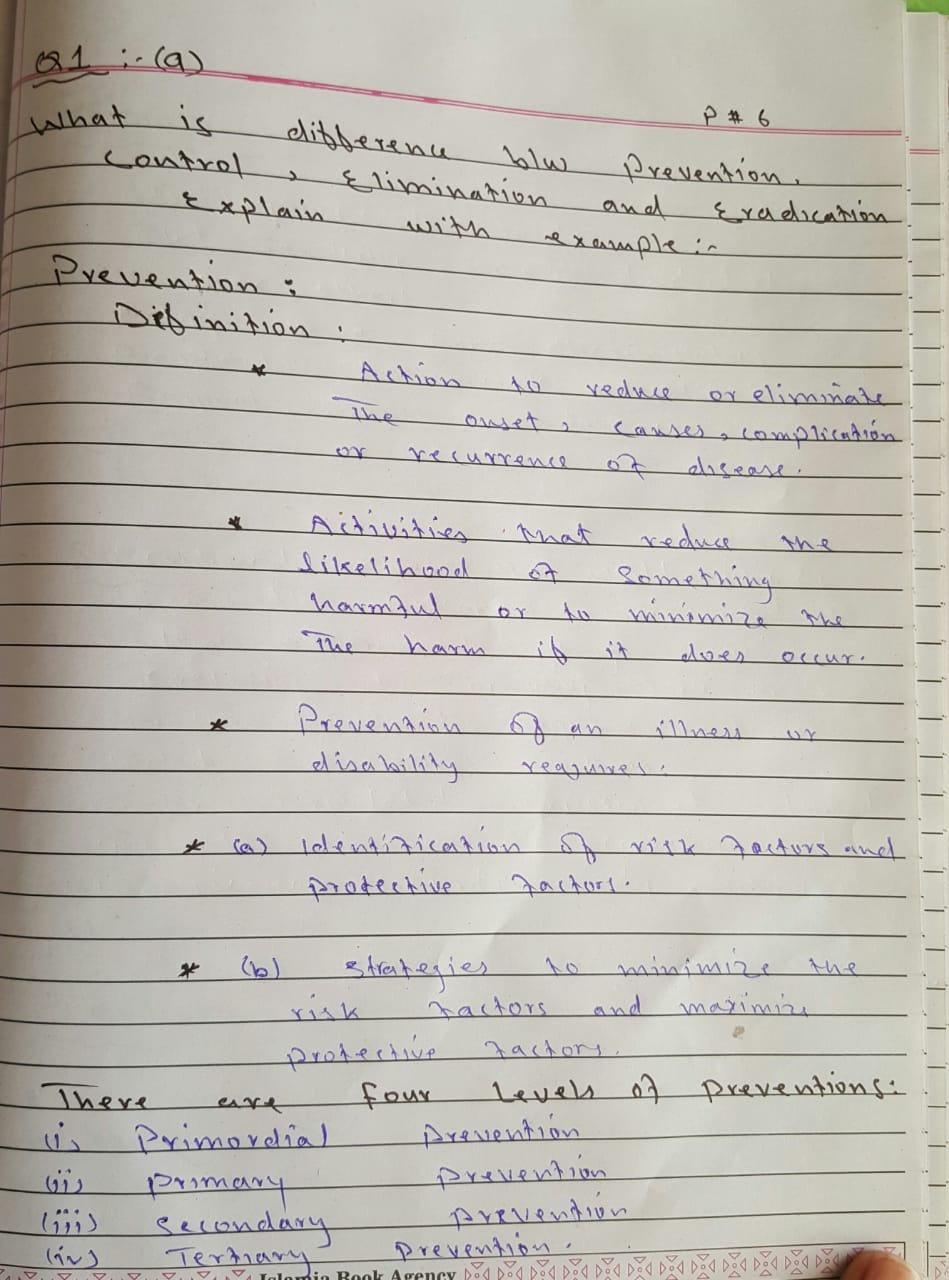 Q1 :- (a)
P # 6
What is difference b/w Prevention,
Control, Elimination and Eradication
Explain with example :-
Prevention :
Definition :
* Action to reduce or eliminate
The onset, causes, complication
or recurrence of disease.
* Activities that reduce the
likelihood of something
harmful or to minimize the
The harm if it does occur.
* Prevention of an illness or
disability requires.
* (a) Identification of risk factors and
protective factors.
* (b) strategies to minimize the
risk factors and maximize
protective factors.
There are four Levels of preventions:
(i) Primordial prevention
(ii) primary prevention
(iii) secondary prevention
(iv) Tertiary prevention.
Islamia Book Agency